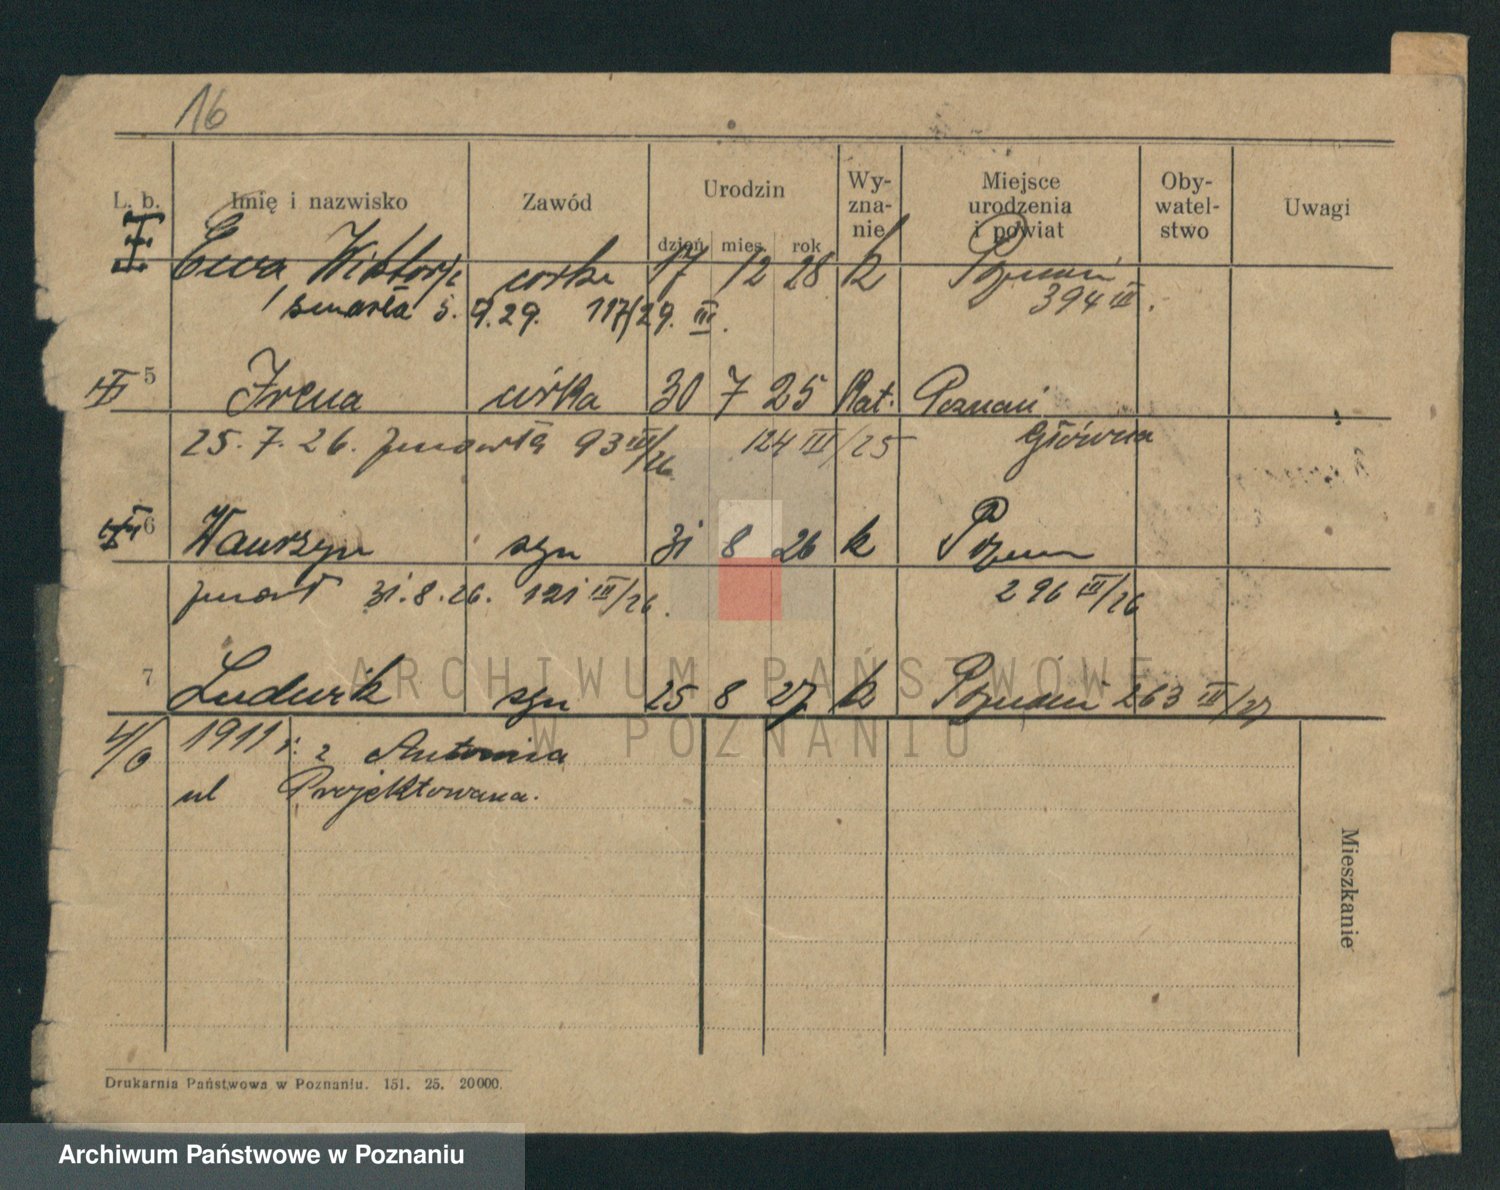 16
L. b. Imię i nazwisko Zawód Urodzin Wy- Miejsce Oby- Uwagi
zna- urodzenia watel-
nie i powiat stwo
dzień mies. rok
Ewa corka 17 12 28 k Poznań
zmarła 5. 9. 29. 117/29. III. 394 III.
5 Irena córka 30 7 25 Kat. Poznań
25. 7. 26. zmarła 93 III/26 124 III/25 Główna
6 Wawrzyn syn 31 8 26 k Pozn
zmarł 31. 8. 26. 121 III/26. 296 III/26
7 Ludwik syn 25 8 27 k Poznań 263 III/27
1911 r. z Antonina
ul Projektowana.
Mieszkanie
Drukarnia Państwowa w Poznaniu. 151. 25. 20000.
ARCHIWUM PAŃSTWOWE
W POZNANIU
Archiwum Państwowe w Poznaniu